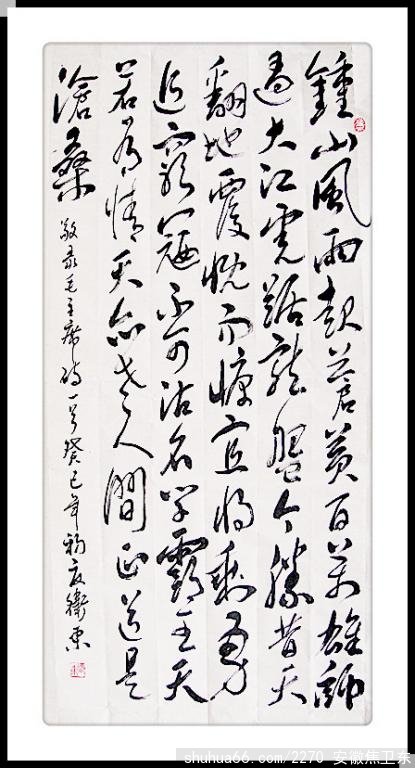 鍾山風雨起蒼黃百萬雄師
過大江虎踞龍盤今勝昔天
翻地覆慨而慷宜將剩勇
追窮寇不可沽名學霸王天
若有情天亦老人間正道是
滄桑
敬录毛主席诗一首癸巳年初夏衛東
shuhua66.com/2270 安徽焦卫东